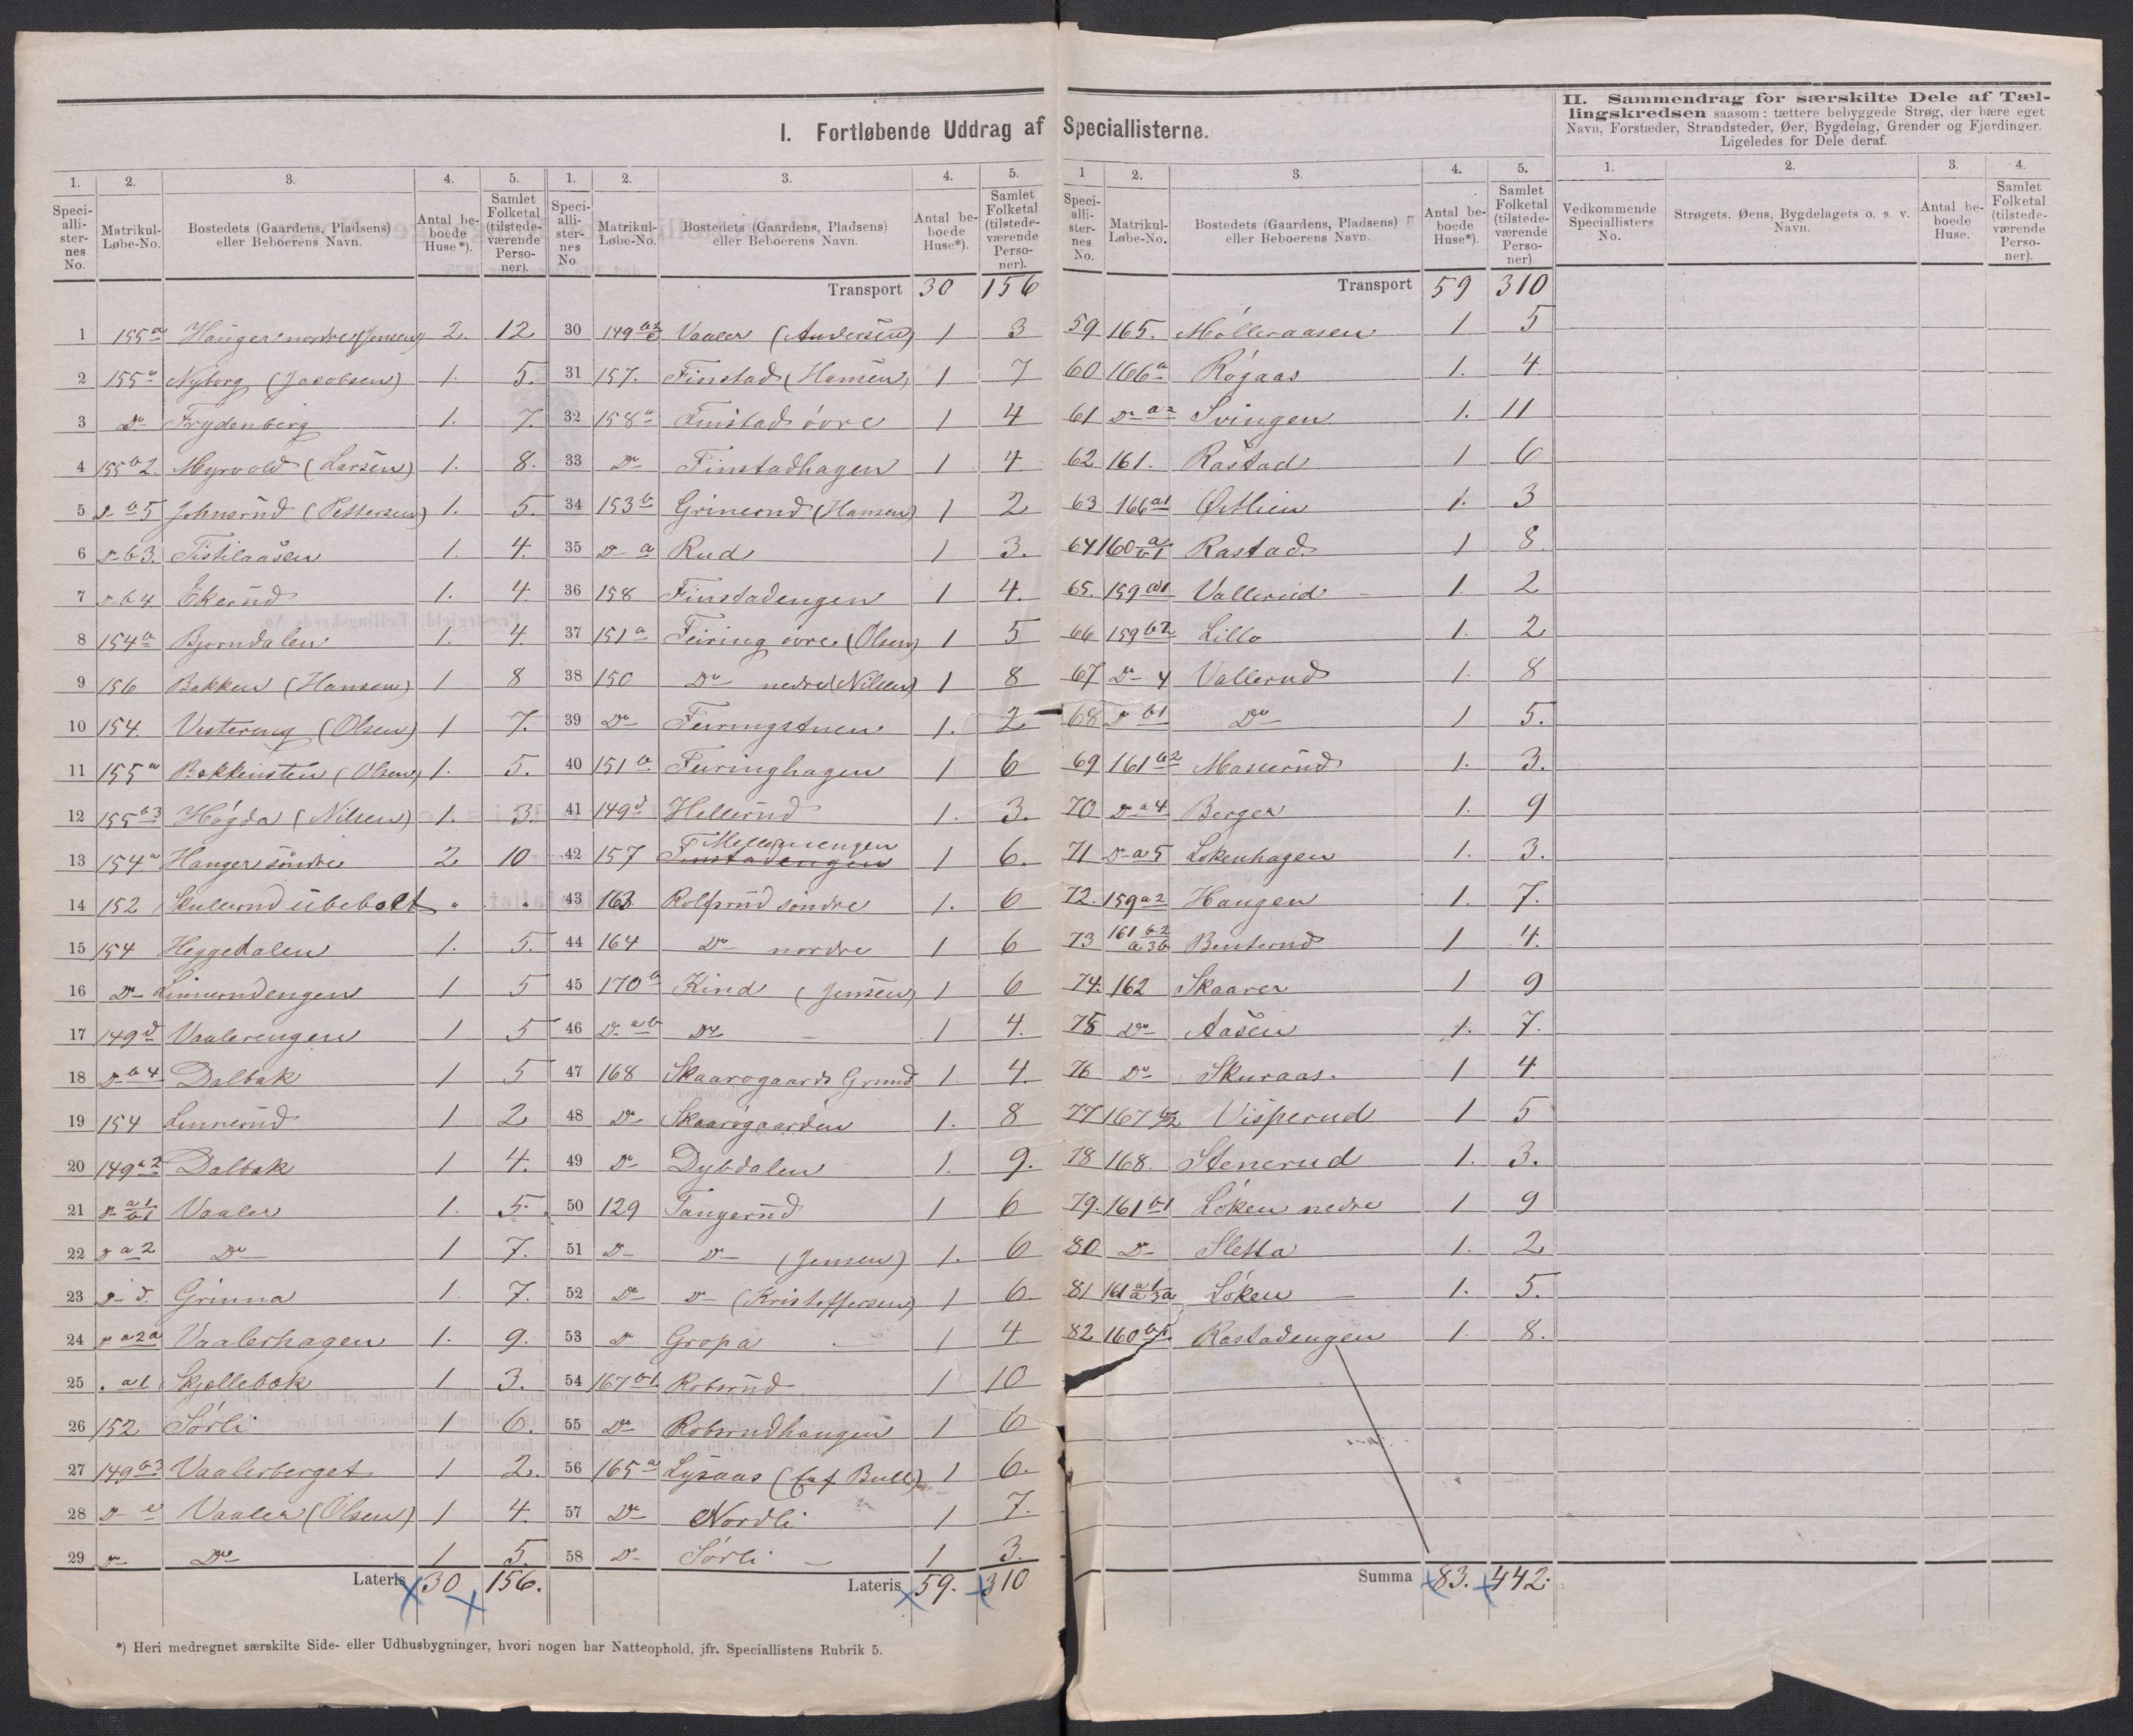 I. Fortløbende Uddrag af Speciallisterne.
II. Sammendrag for særskilte Dele af Tæl-
lingskredsen saasom: tættere bebyggede Strøg, der bære eget
Navn, Forstæder, Strandsteder, Øer, Bygdelag, Grender og Fjerdinger.
Ligeledes for Dele deraf.
1. 2. 3. 4. 5.
Speci-
alli-
ster-
nes
No.
Matrikul-
Løbe-No.
Bostedets (Gaardens, Pladsens)
eller Beboerens Navn.
Antal be-
boede
Huse*).
Samlet
Folketal
(tilstede-
værende
Perso-
ner).
1 155a Hauger nordre (Jensen) 2. 12
2 155a Nyborg (Jacobsen) 1. 5.
3 Do Frydenberg 1. 7.
4 155b2. Myrvold (Larsen) 1. 8.
5 D b5 Johnsrud (Pettersen) 1. 5.
6 D b3. Tistilaasen 1. 4.
7 D b4 Ekerud 1. 4.
8 154a Bjorndalen 1. 4.
9 156 Bakken (Hansen) 1 8
10 154. Vestereng (Olsen) 1 7.
11 155a Bakkensten (Olsen) 1. 5.
12 155a3 Høgda (Nilsen) 1. 3.
13 154a Hauger søndre 2 10
14 152 Skullerud ubebolt " "
15 154 Heggedalen 1. 5.
16 Do Linnerudengen 1 5
17 149d Vaalerengen 1 5
18 D b4 Dalbak 1 5
19 154 Linnerud 1 2
20 149a2 Dalbak 1 4.
21 D a1 b1 Vaaler 1. 5.
22 D a2 Do 1 7.
23 D d. Grinna 1. 7.
24 D a2a Vaalerhagen 1. 9.
25 . a1 Skjøllebæk 1 3.
26 152 Sørli 1 6.
27 149b3 Vaalerberget 1 2.
28 D e Vaaler (Olsen) 1 4.
29 Do Do 1 5.
Lateris 30 156.
1. 2. 3. 4. 5.
Speci-
alli-
ster-
nes
No.
Matrikul-
Løbe-No.
Bostedets (Gaardens, Pladsens)
eller Beboerens Navn.
Antal be-
boede
Huse*).
Samlet
Folketal
(tilstede-
værende
Perso-
ner).
Transport 30 156
30 149 Vaaler (Andersen) 1 3
31 157. Finstad (Hansen) 1 7
32 158a Finstad øvre 1 4
33 Do Finstadhagen 1 4
34 153b Grinerud (Hansen) 1 2
35 D a Rud 1 3.
36 158 Finstadengen 1 4.
37 151a Feiring øvre (Olsen) 1 5
38 150 Do nedre (Nilsen) 1 8
39 Do Feiringstuen 1. 2
40 151b Feiringhagen 1 6
41 149d Hellerud 1. 3.
42 157 Finstadengen Mellemengen 1 6.
43 163 Rolfsrud søndre 1. 6
44 164 Do nordre 1 6
45 170a Kind (Jensen) 1 6
46 D ab Do 1 4.
47 168 Skaarøgaards Grund 1. 4.
48 Do Skaarøgaarden 1. 8
49 Do Dybdalen 1. 9.
50 129 Tangerud 1 6
51 Do Do (Jensen) 1. 6
52 Do Do (Kristoffersen) 1 6.
53 Do Gropa 1 4
54 167b1. Robsrud 1 10
55 Do Robsrudhaugen 1 6
56 165a Lysaas (Bull) 1 6.
57 Do Nordli 1 7.
58 Do Sørli 1 3.
Lateris 59. 310
1 2. 3. 4. 5.
Speci-
alli-
ster-
nes
No.
Matrikul-
Løbe-No.
Bostedets (Gaardens, Pladsens)
eller Beboerens Navn.
Antal be-
boede
Huse*).
Samlet
Folketal
(tilstede-
værende
Perso-
ner).
Transport 59 310
59 165. Mølleraasen 1 5
60 166a Røgaas 1. 4.
61 D a2 Svingen 1. 11
62 161. Rastad 1 6
63 166a1 Østlien 1. 3
64 160 a b1 Rastad 1 8.
65. 159a1 Vallerud 1. 2
66 159b2 Lillo 1. 2
67 D 4 Vallerud 1. 8
68 D b1 Do 1 5.
69 161a2 Maserud 1. 3.
70 D a4 Berger 1. 9
71 D a5 Løkenhagen 1. 3.
72. 159a2 Haugen 1. 7.
73 161 b2 a3b Benterud 1 4.
74. 162 Skaarer 1 9
75 Do Aasen 1. 7.
76 Do Skuraas. 1 4
77 167 Visperud 1 5
78 168. Stenerud 1. 3.
79. 161b1 Løken nedre 1 9
80 Do Sletta 1. 2
81 161 a1 a3a Løken 1. 5.
82 160 Rastadengen 1. 8.
Summa 83. 442.
1. 2. 3. 4.
Vedkommende
Speciallisters
No.
Strøgets, Øens, Bygdelagets o. s. v.
Navn.
Antal be-
boede
Huse.
Samlet
Folketal
(tilstede-
værende
Perso-
ner).
*) Heri medregnet særskilte Side- eller Udhusbygninger, hvori nogen har Natteophold, jfr. Speciallistens Rubrik 5.